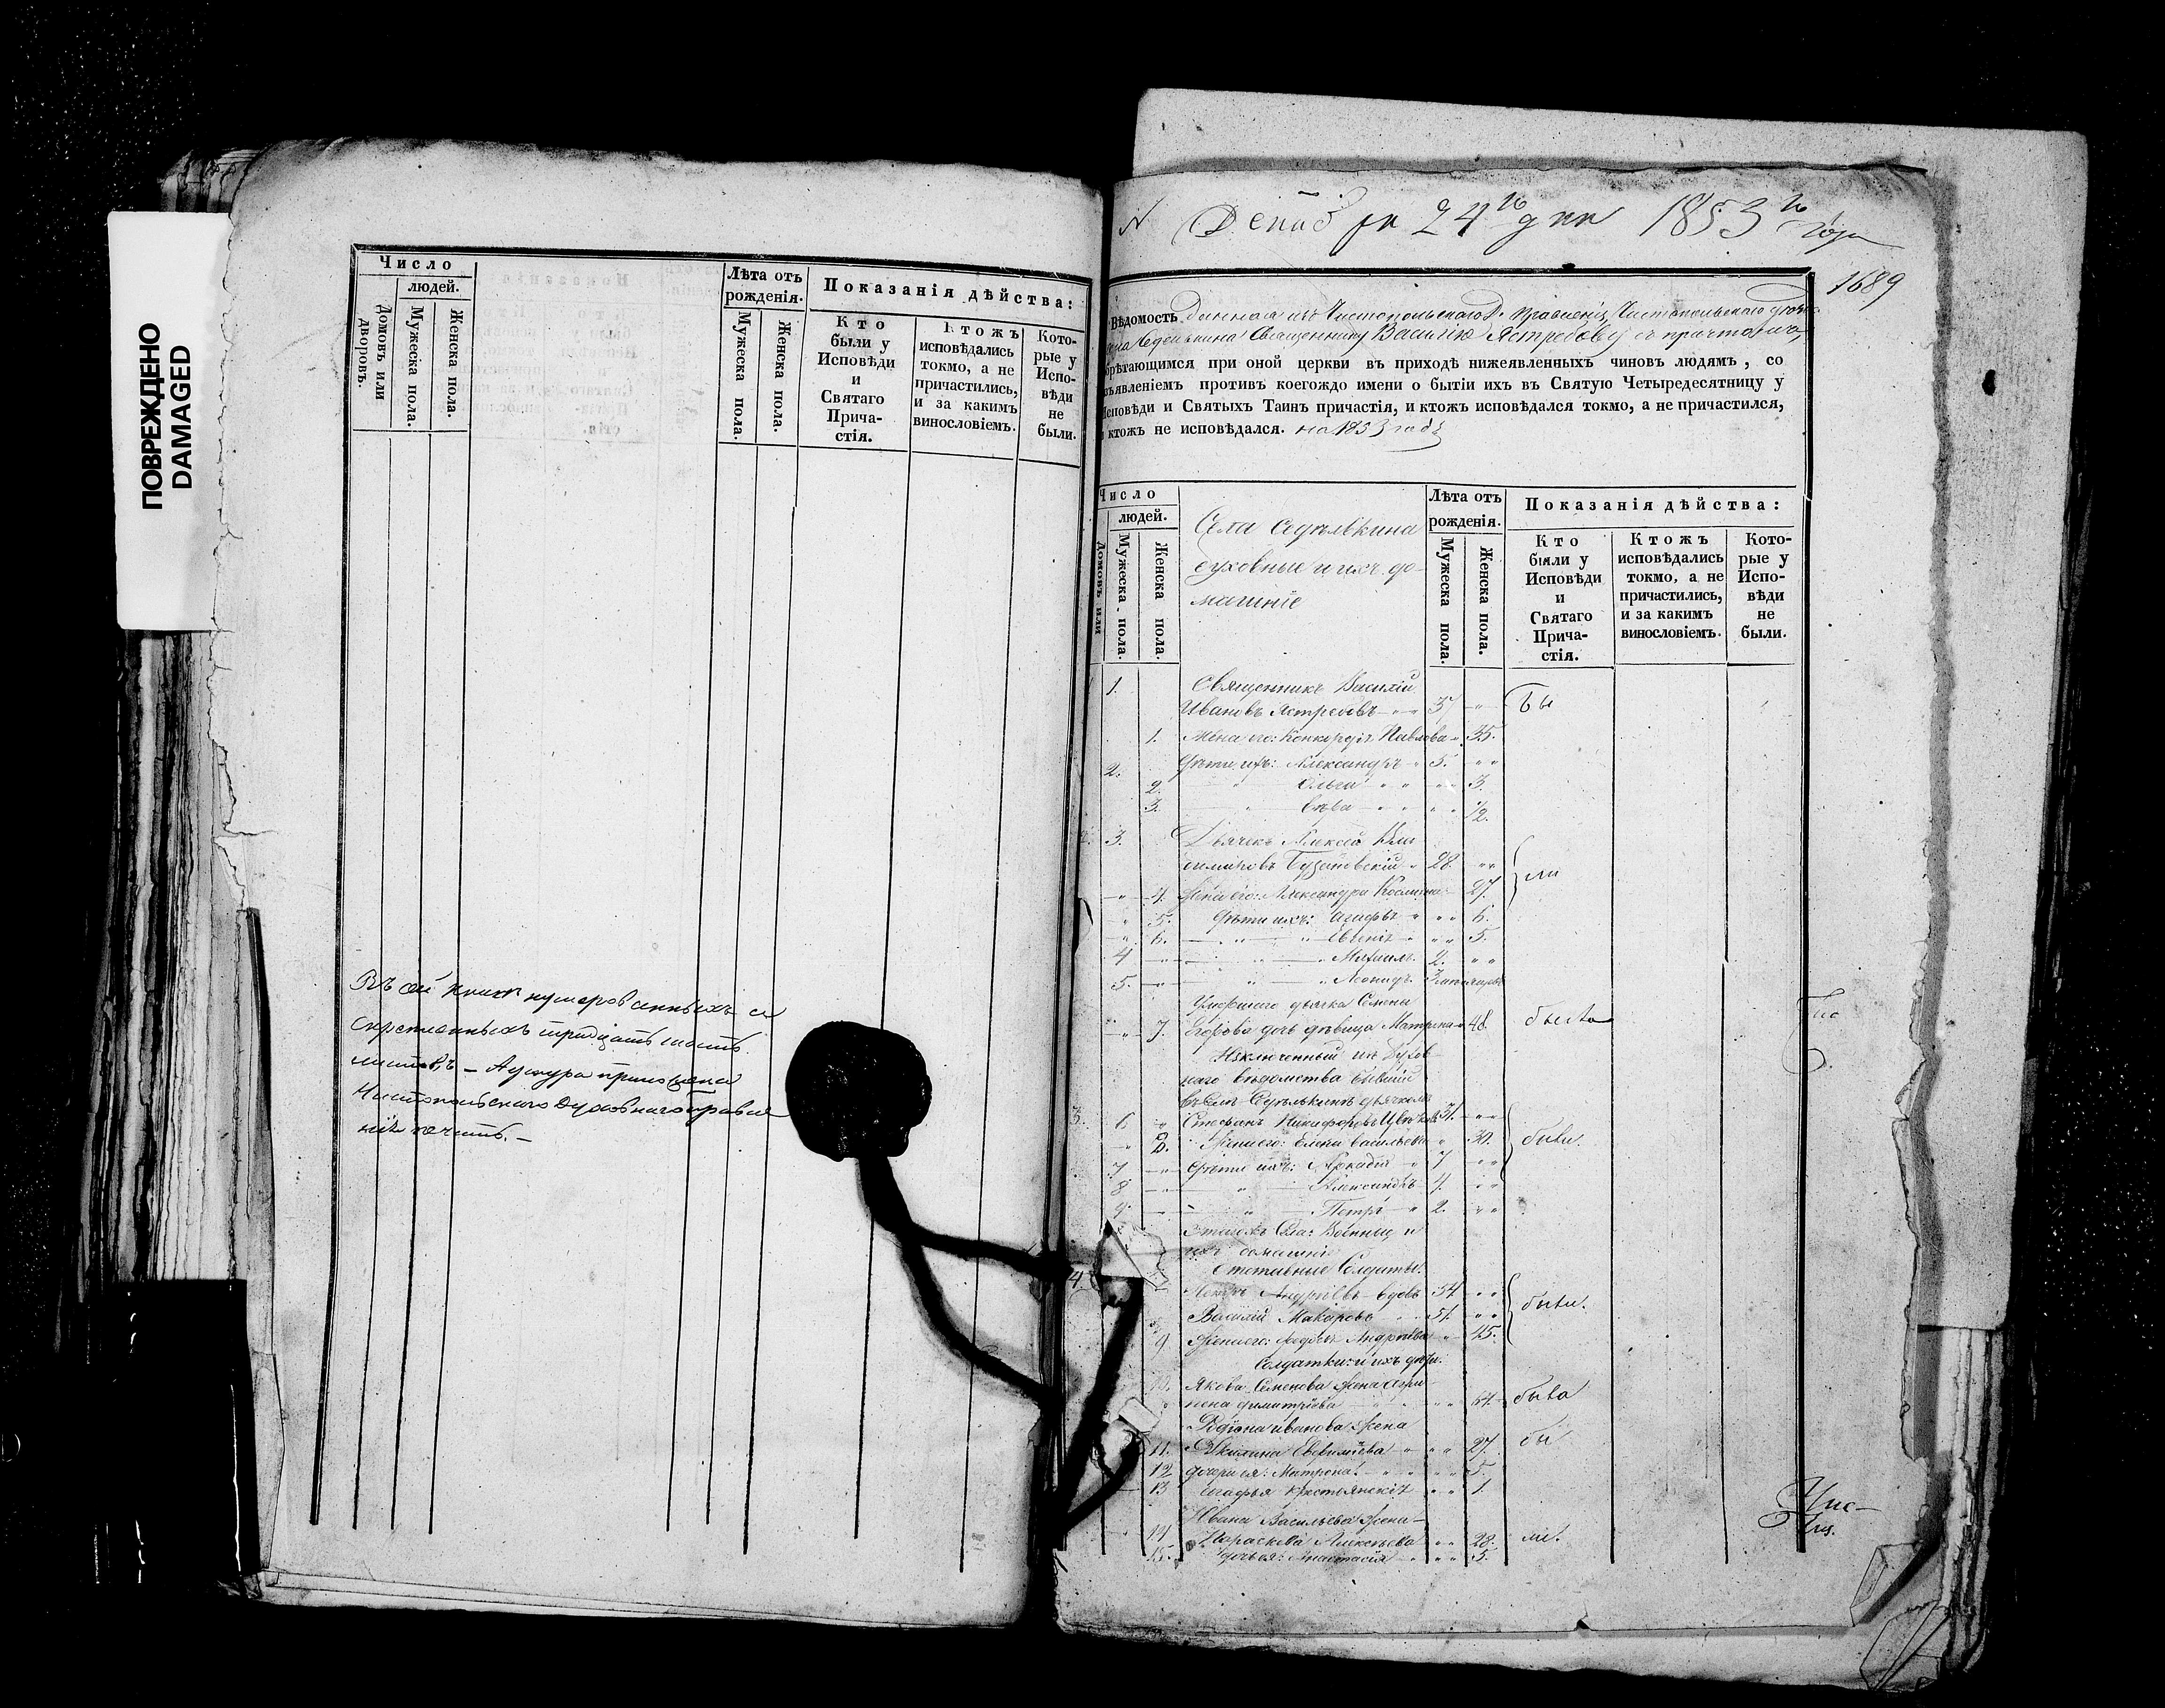 ПОВРЕЖДЕНО
DAMAGED
Число
людей.
Домовъ или дворовъ.
Мужеска пола.
Женска пола.
Лѣта отъ рожденія.
Мужеска пола.
Женска пола.
Показанія дѣйства:
Кто были у Исповѣди и Святаго Причастія.
Ктожъ исповѣдались токмо, а не причастились, и за какимъ винословіемъ.
Которые у Исповѣди не были.
Въ сей книгѣ нумерованныхъ и
скрепленныхъ тридцать шесть
листовъ – Ашнура приложена
Чистопольскаго Духовнаго Правле
нія печать. –
Декабря 24го дня 1853го Года
1689
Вѣдомость данная изъ Чистопольскаго Д. Правленія Чистопольскаго уѣзда
села Седелькина Священнику Василію Ястребову съ причтомъ,
обрѣтающимся при оной церкви въ приходѣ нижеявленныхъ чиновъ людямъ, со
изъявленіемъ противъ коегождо имени о бытіи ихъ въ Святую Четыредесятницу у
Исповѣди и Святыхъ Таинъ причастія, и ктожъ исповѣдался токмо, а не причастился,
и ктожъ не исповѣдался. на 1853 годъ
Число
людей.
Домовъ или
Мужеска пола.
Женска пола.
Села Седѣлькина
духовные и ихъ до-
машніе
Лѣта отъ рожденія.
Мужеска пола.
Женска пола.
Показанія дѣйства:
Кто были у Исповѣди и Святаго Причастія.
Ктожъ исповѣдались токмо, а не причастились, и за какимъ винословіемъ.
Которые у Исповѣди не были.
1. Священникъ Василій
Ивановъ Ястребовъ 37 Бы
1. Жена его: Конкордія Павлова 35.
2. Дѣти ихъ: Александръ 5.
2. Ольга 3.
3. Вѣра 1/2.
3. Дьячекъ Алексей
28 ли
4. Жена его: Александра 27.
5. Дѣти ихъ: Агафья 6.
6. Евгенія 5.
4 Михаилъ 2.
5. Леонидъ
Умершаго дьячка Семена
7. Егорова дочь дѣвица Матрона 48. была
Изключенный изъ Духов-
наго вѣдомства бывшій
въ селѣ Седѣлькинѣ дьячкомъ
3. 6 Стефанъ Никифоровъ
8. Жена его: Елена Васильева 30. были.
7 Дѣти ихъ: Аркадій 7
8 Александръ 4.
9. Петръ 2.
Этагожъ Села: Военныя и
ихъ домашніе
Отставные Солдаты:
4. Андреевъ вдовъ 54 были.
Василій Макаровъ 51.
9 Жена его: Андреева 45.
Солдатки: и ихъ дѣти:
10. Якова Семенова жена Агри-
пена Димитріева 64 была
Родіона Иванова жена
11. Акилина Евфиміева 27. бы
12 дочери ея: Матрона 5.
13 Агафья 1.
Ивана Васильева жена
14 Параскева Алексѣева 28. ли.
15. дочь ея: Анастасія 5.
Чис-